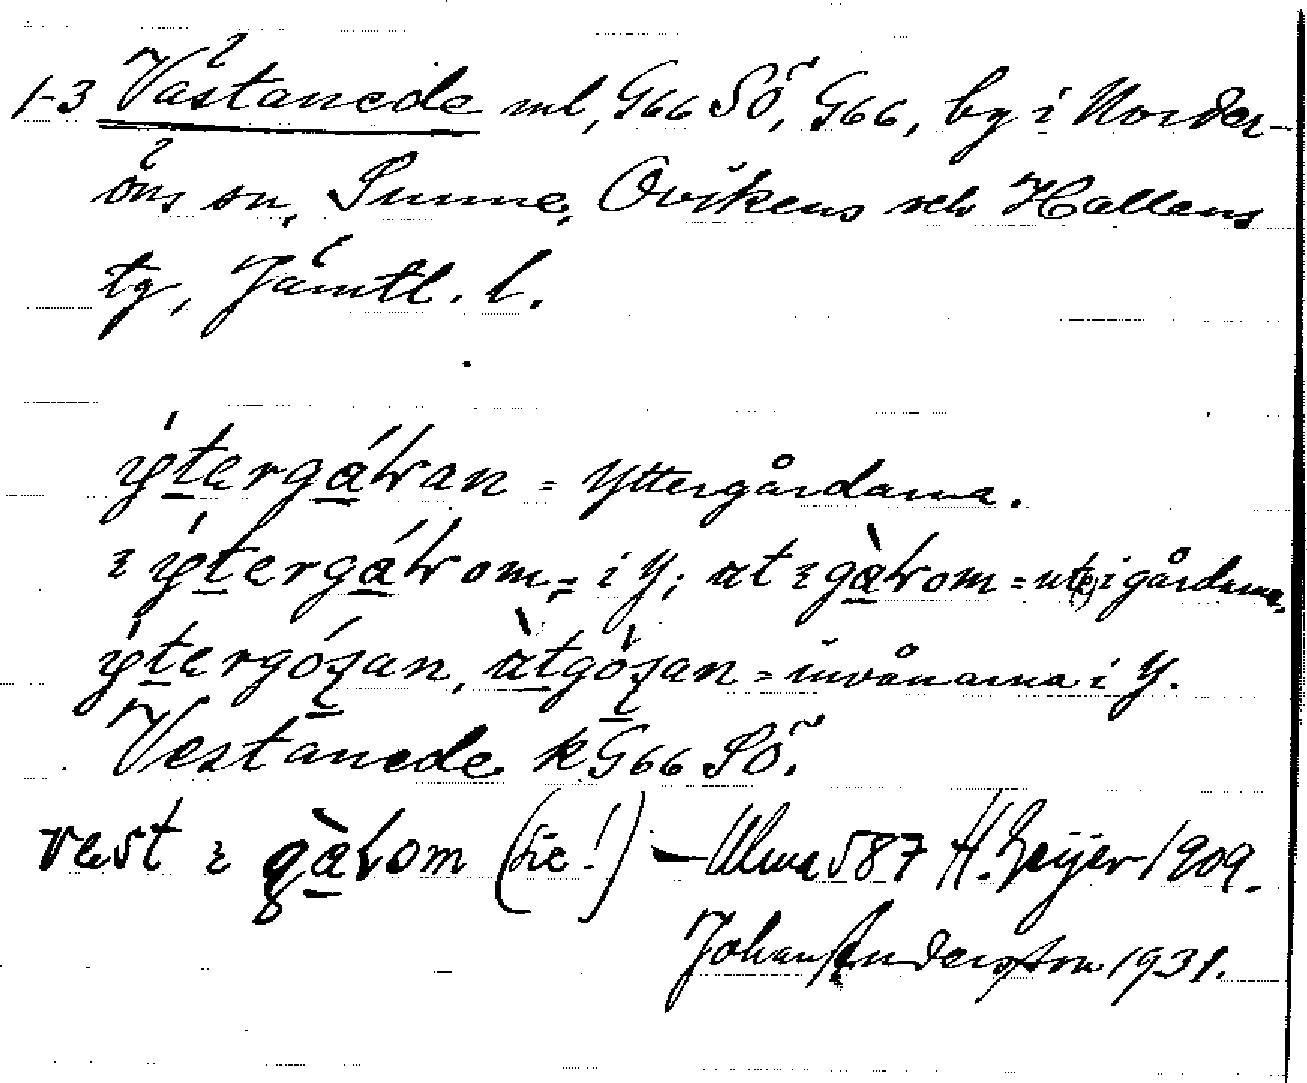 1-3 Västanede ml, G66 SÖ, G66, by i Norder-
öns sn, Sunne, Ovikens och Hallens
tg, Jämtl. l.
ytergaɽan = Yttergårdarna.
ɩ ytergaɽom = i Y; ut ɩ gaɽom = ute i gårdarna,
invånarna i Y.
Vestanede k G66 SÖ.
vest ɩ gaɽom (sic!) – Ulma 587 H. Geijer 1909.
Johan Andersson 1931.